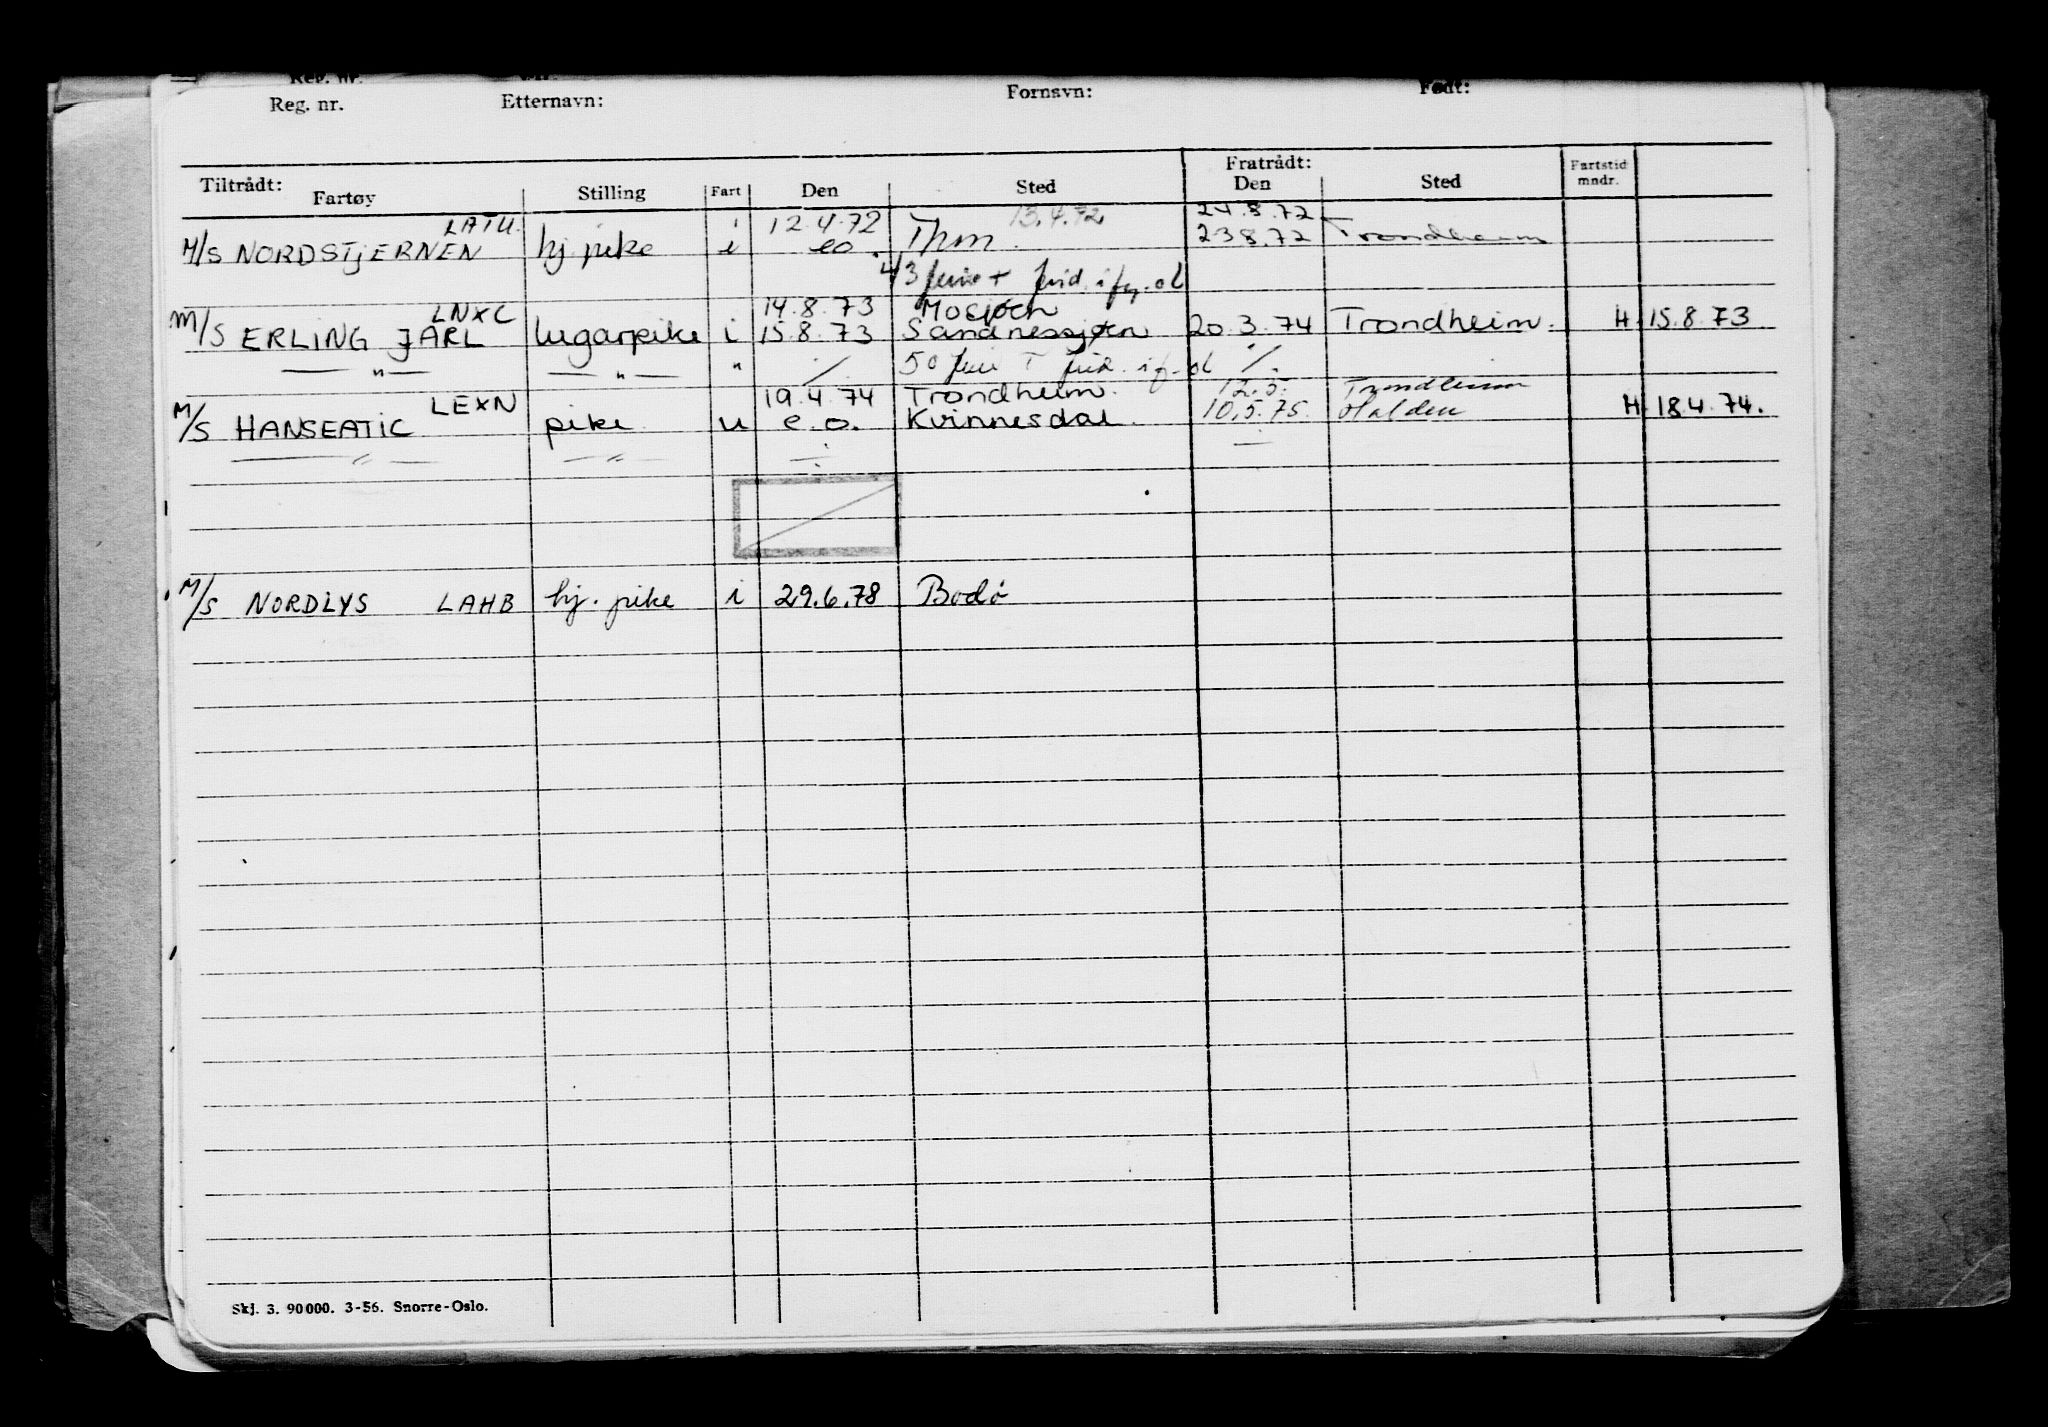 Reg. nr.
Reg. nr. Etternavn: Fornavn: Født:
Tiltrådt: Fratrådt: Fartstid mndr.
Fartøy Stilling Fart Den Sted Den Sted
LATU. i 12.4.72 13.4.72 24.8.72
M/S NORDSTJERNEN hj. pike i eo Thm. 23.8.72 Trondheim
LNXC 14.8.73 Mosjøen
M/S ERLING JARL lugarpike i 15.8.73 Sandnessjøen 20.3.74 Trondheim. H. 15.8.73
— " — — " — " 50
LEXN 19.4.74 Trondheim. 12.5. Trondheim
M/S HANSEATIC pike u e.o. Kvinnesdal. 10.5.75. Halden H. 18.4.74.
— " — — " —
M/S NORDLYS LAHB hj. pike i 29.6.78 Bodø
Skj. 3. 90 000. 3-56. Snorre-Oslo.